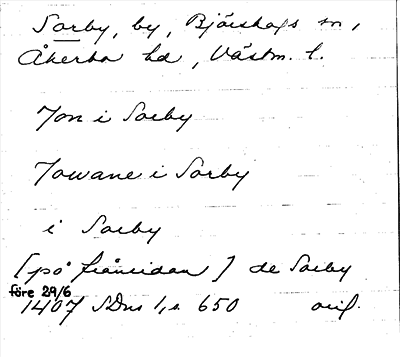 Sorby, by, Björskogs sn,
Åkerbo hd, Västm. l.
Jon i Sorby
Jowane i Sorby
i Sorby
[på frånsidan] de Sorby
före 29/6
1407 SDns 1, s. 650 orig.